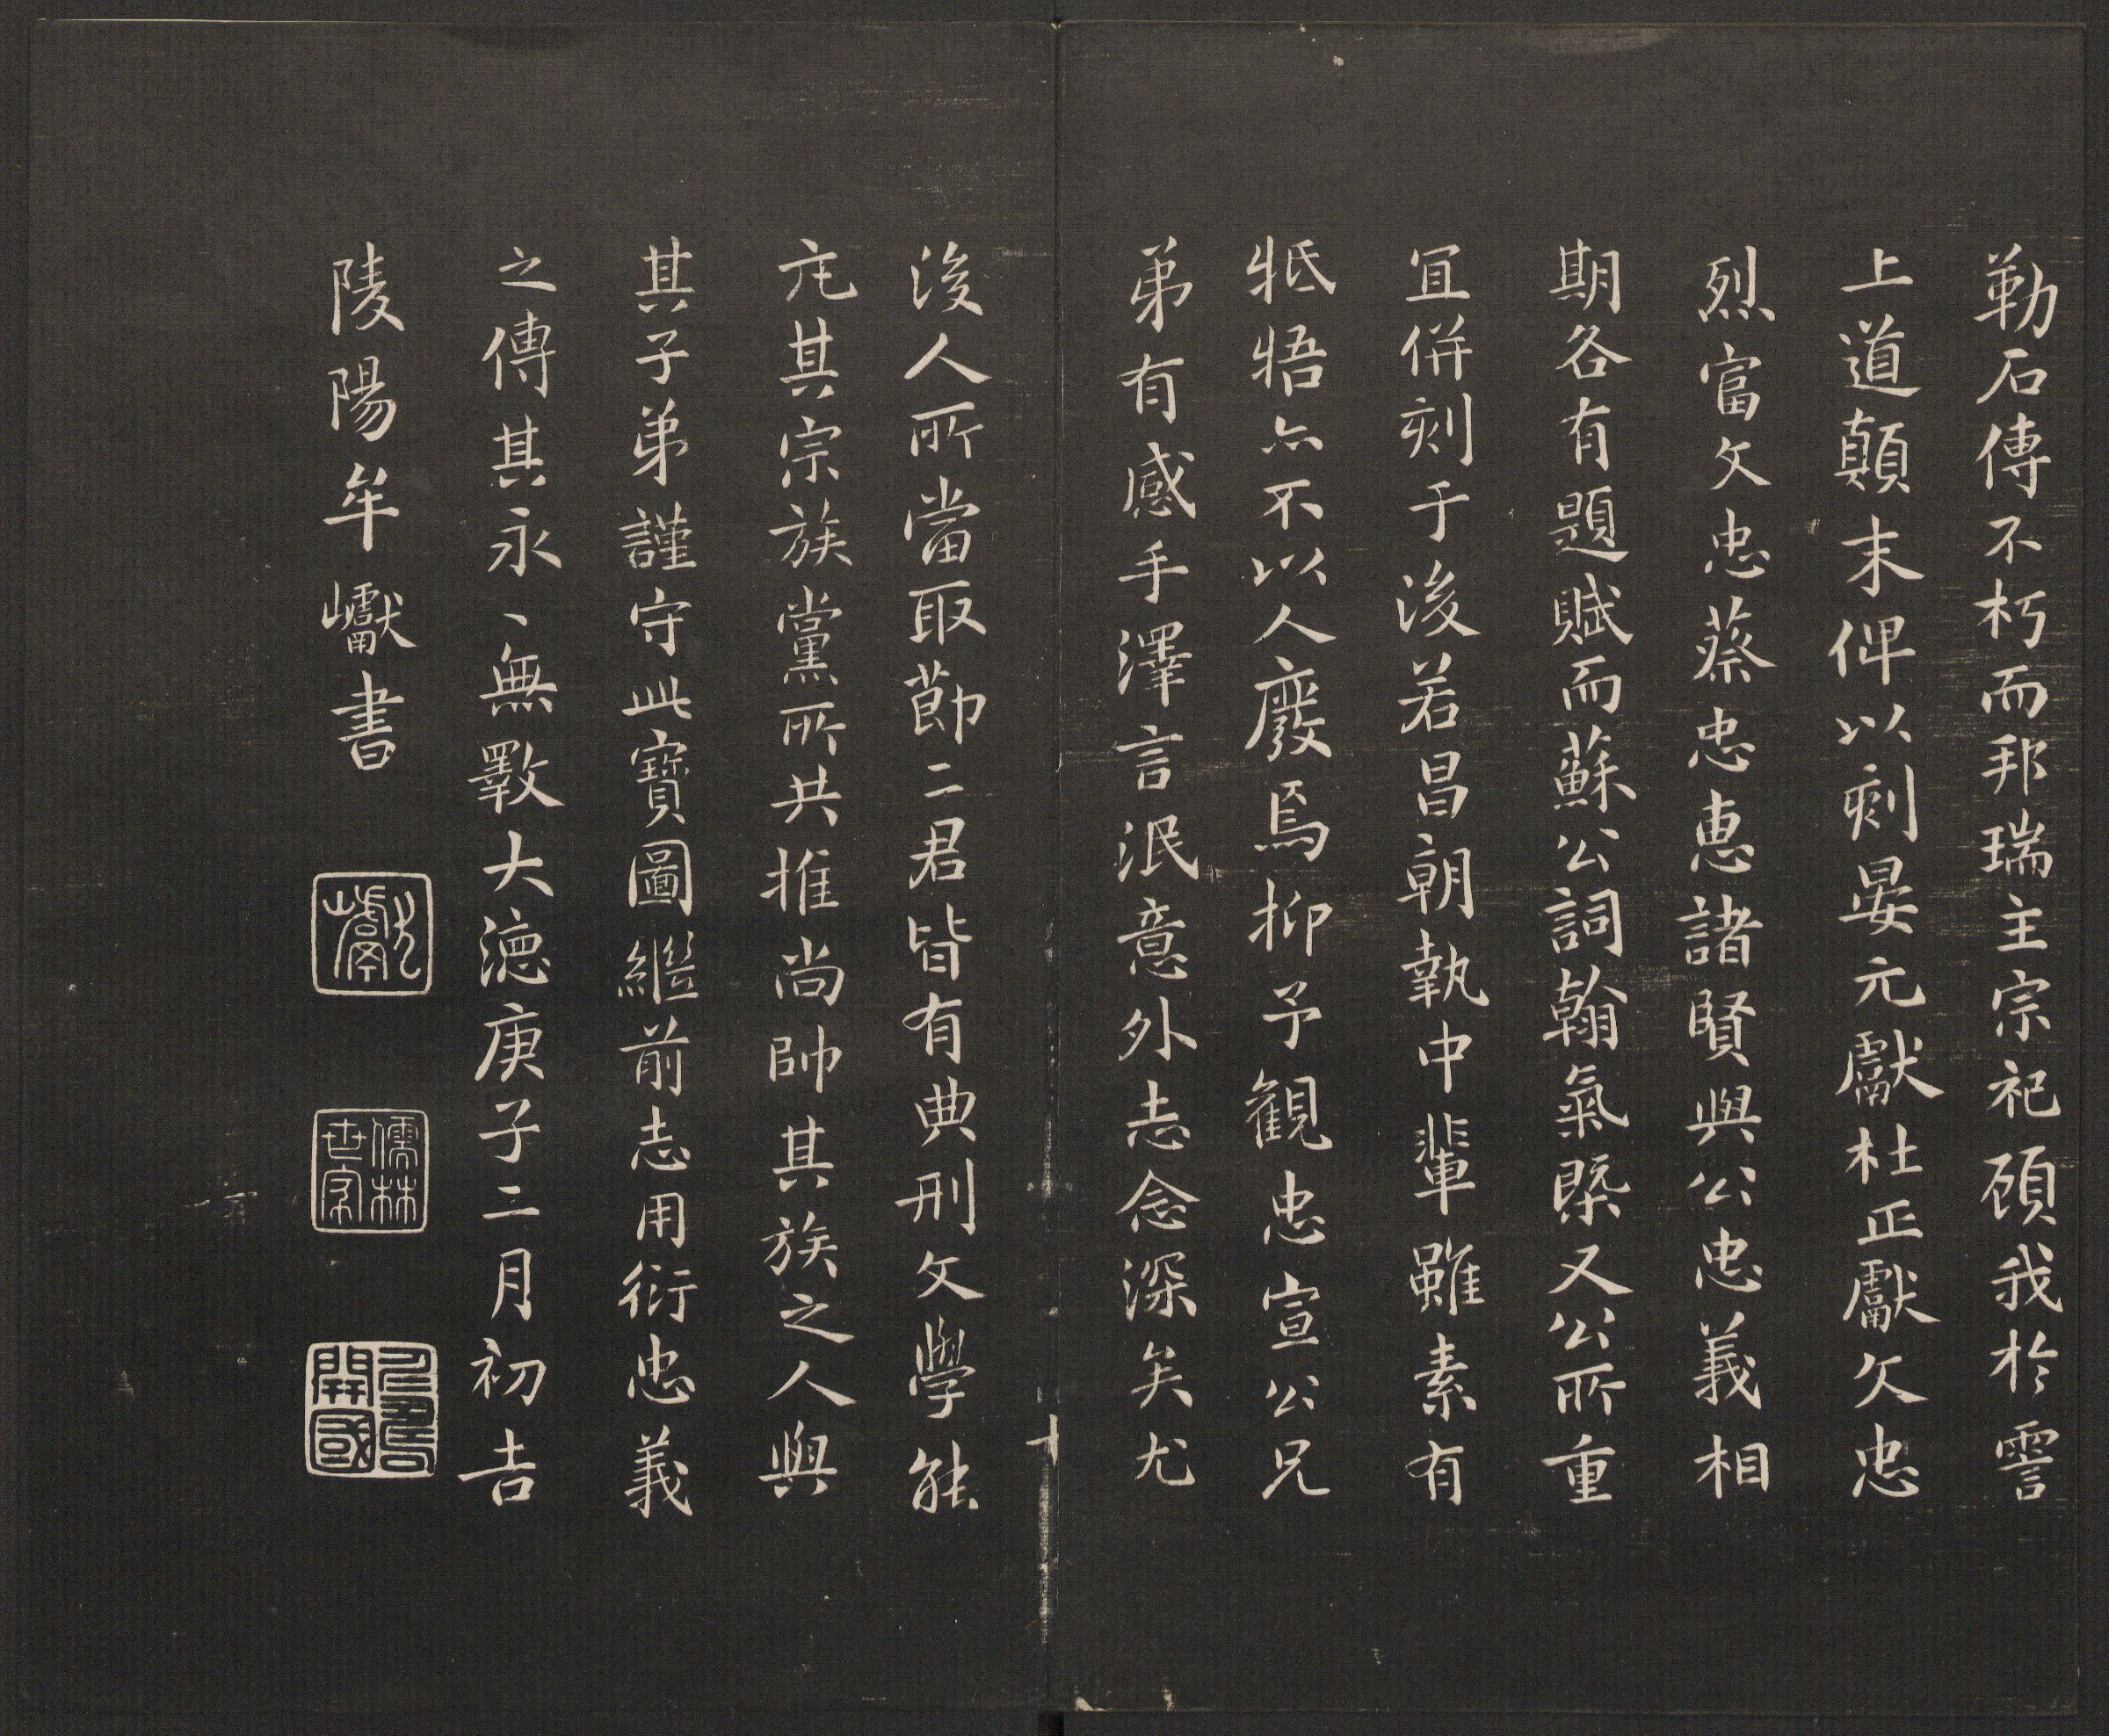 勒石傳不朽而邦瑞主宗祀頋我於霅
上道顛末俾以刻晏元獻杜正獻文忠
烈富文忠蔡忠惠諸賢與公忠義相
期各有題賦而蘇公詞翰氣槩又公所重
冝併刻于後若昌朝執中輩雖素有
牴牾亦不以人廢焉抑予観忠宣公兄
弟有感手澤言泯意外志念深矣尤
後人所當取莭二君皆有典刑文學能
亢其宗族黨所共推尚帥其族之人與
其子弟謹守此寶圖繼前志用衍忠義
之傳其永〻無斁大德庚子二月初吉
陵陽牟巘書
巘
儒林世家
開國